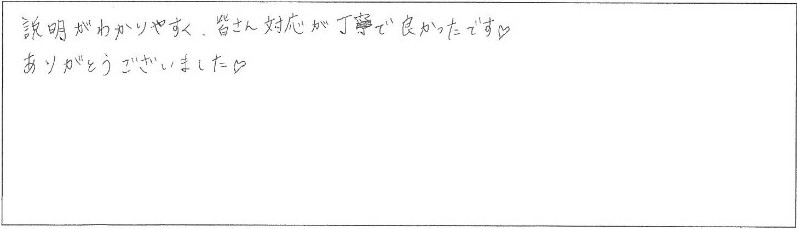 説明がわかりやすく、皆さん対応が丁寧で良かったです♡
ありがとうございました♡